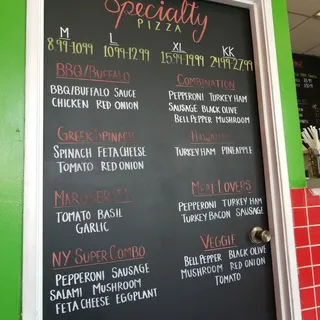 Specialty
PIZZA
M L XL KK
8.99-10.99 10.99-12.99 15.99-19.99 24.99-27.99
BBQ/BUFFALO
BBQ/BUFFALO SAUCE
CHICKEN RED ONION
GREEK SPINACH
SPINACH FETA CHEESE
TOMATO RED ONION
MARGHERITA
TOMATO BASIL
GARLIC
NY SUPER COMBO
PEPPERONI SAUSAGE
SALAMI MUSHROOM
FETA CHEESE EGGPLANT
COMBINATION
PEPPERONI TURKEY HAM
SAUSAGE BLACK OLIVE
BELL PEPPER MUSHROOM
HAWAIIAN
TURKEY HAM PINEAPPLE
MEAT LOVERS
PEPPERONI TURKEY HAM
TURKEY BACON SAUSAGE
VEGGIE
BELL PEPPER BLACK OLIVE
MUSHROOM RED ONION
TOMATO